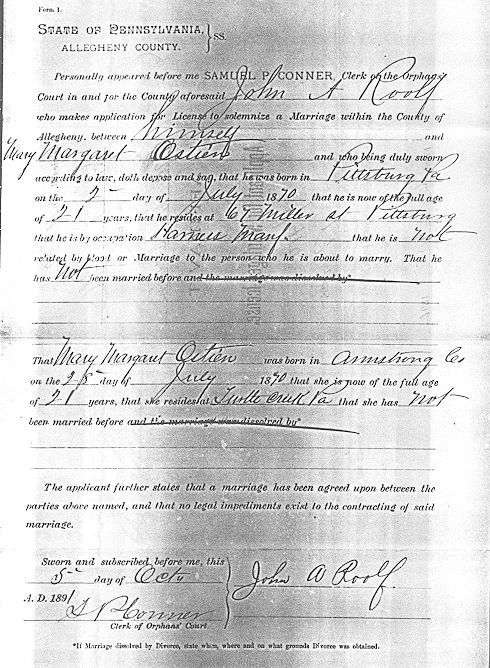 Form 1.
STATE OF PENNSYLVANIA,
ALLEGHENY COUNTY. } SS.
Personally appeared before me SAMUEL P. CONNER, Clerk of the Orphans'
Court in and for the County aforesaid John A Roolf
who makes application for License to solemnize a Marriage within the County of
Allegheny, between himself and
Mary Margaret Ostien and who being duly sworn
according to law, doth depose and say, that he was born in Pittsburg Pa
on the day of July 1870 that he is now of the full age
of 21 years, that he resides at 67 Miller st Pittsburg
that he is by occupation Harness Manf. that he is not
related by blood or Marriage to the person who he is about to marry. That he
has Not been married before and the marriage was dissolved by*
That Mary Margaret Ostien was born in Armstrong Co
on the 25 day of July 1870 that she is now of the full age
of 21 years, that she resides at Turtle Creek Pa that she has not
been married before and the marriage was dissolved by*
The applicant further states that a marriage has been agreed upon between the
parties above named, and that no legal impediments exist to the contracting of said
marriage.
Sworn and subscribed before me, this
5 day of Octr
A. D. 1891
S P Conner
Clerk of Orphans' Court.
John A Roolf.
*If Marriage dissolved by Divorce, state when, where and on what grounds Divorce was obtained.